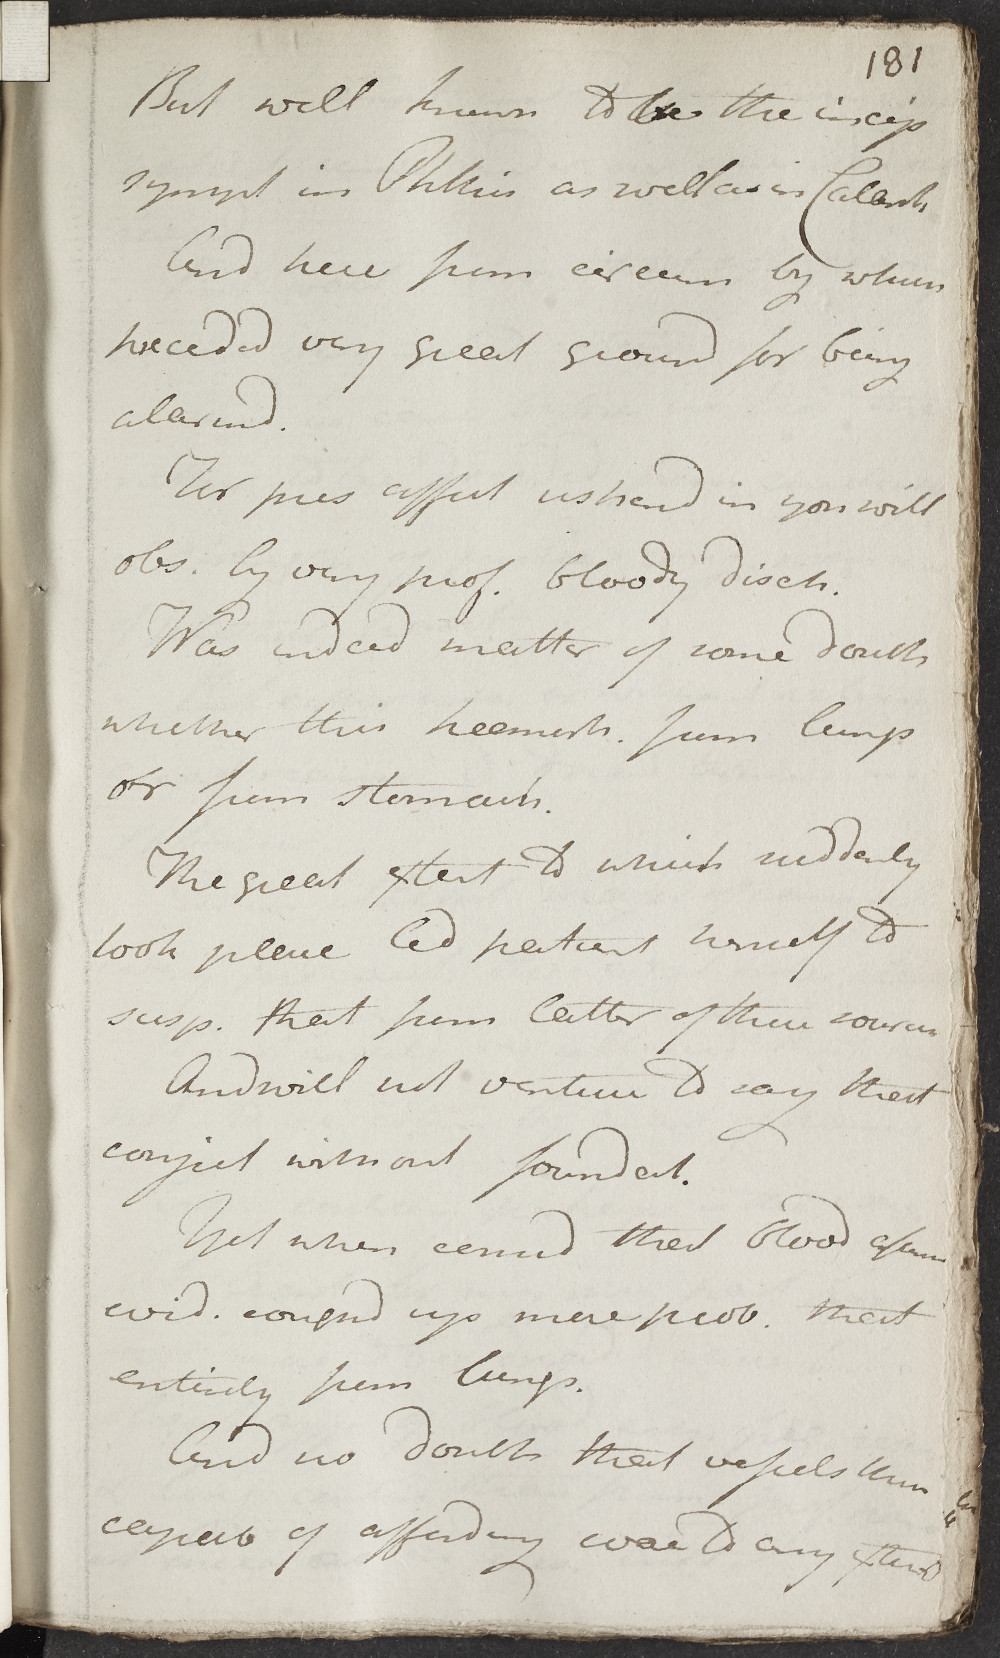 181
But well known to be the incip
sympt in Phthisis as well as in Catarrh
And here from circum by whm
preceded very great ground for being
alarmd.
For pres affect ushend in you will
obs. by very prof. bloody disch.
Was indeed matter of some doubt
whether this haemorh. from lungs
or from stomach.
The great extent to which suddenly
took place led patient herself to
susp. that from latter of these sources
And will not venture to say that
conject without foundat.
Yet when consid that blood
evid. coughd up more prob. that
entirely from lungs.
And no doubt that vessels
capab of affording evac to any extent